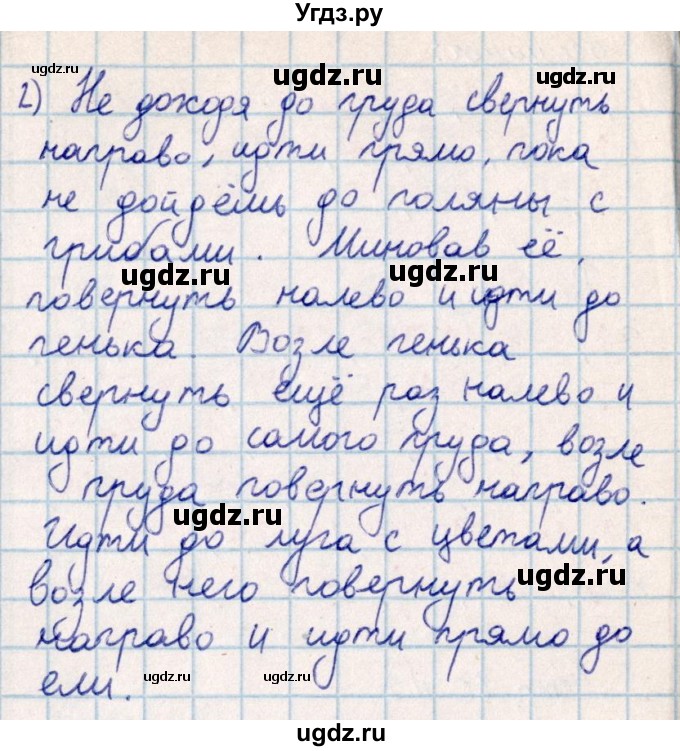 Угдз.ру
ugdz.ru ugdz.ru ugdz.ru
2) Не доходя до пруда свернуть
направо, идти прямо, пока
не дойдёшь до поляны с
грибами. Миновав её,
ugdz.ru ugdz.ru
повернуть налево и идти до
пенька. Возле пенька
свернуть ещё раз налево и
идти до самого пруда, возле
пруда повернуть направо.
ugdz.ru
Идти до луга с цветами, а
ugdz.ru
возле него повернуть
направо и идти прямо до
ели.
ugdz.ru ugdz.ru
ugdz.ru